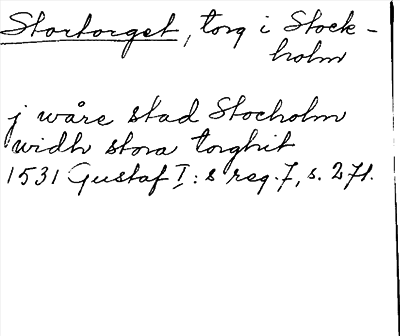 Stortorget, torg i Stock-
holm
j wåre stad Stocholm
widh stora torghit
1531 Gustaf I:s reg. 7, s. 271.